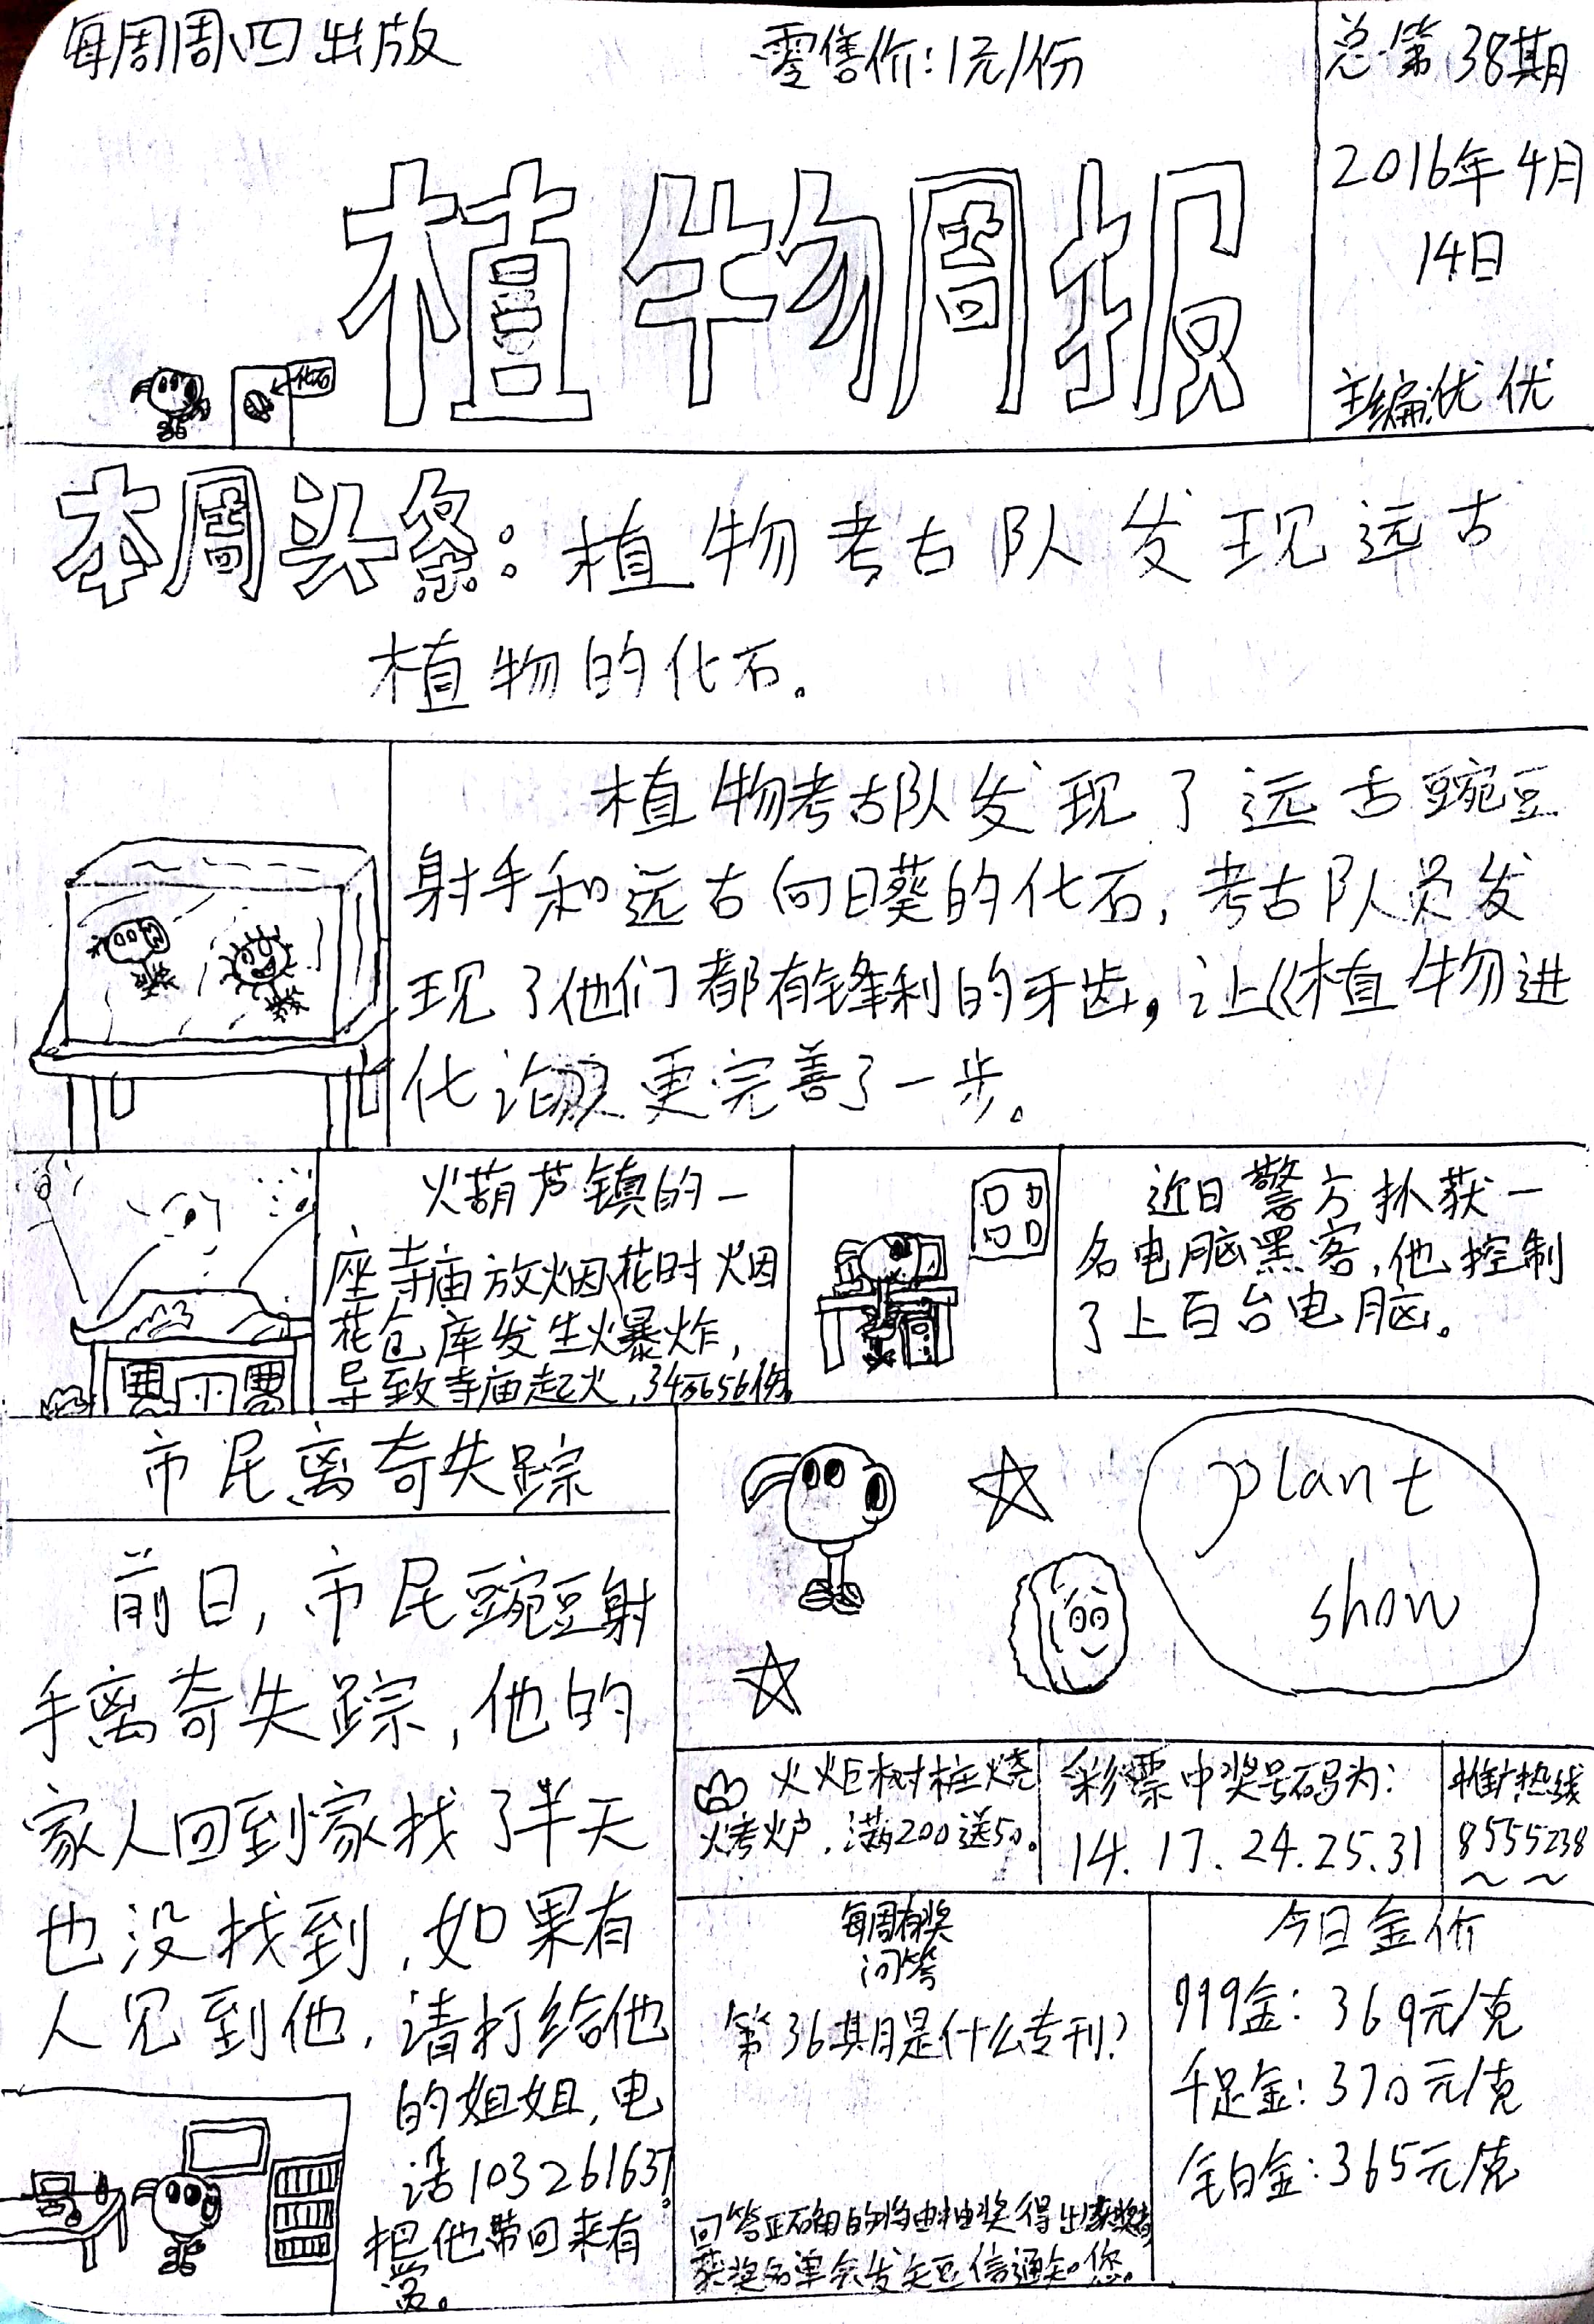 每周周四出版
零售价:1元/份
总第38期
2016年4月
14日
主编:优优
植物周报
化石
本周头条:植物考古队发现远古
植物的化石。
植物考古队发现了远古豌豆
射手和远古向日葵的化石,考古队员发
现了他们都有锋利的牙齿,让《植物进
化论》更完善了一步。
火葫芦镇的一
座寺庙放烟花时烟
花仓库发生火爆炸,
导致寺庙起火,34死656伤。
近日警方抓获一
名电脑黑客,他控制
了上百台电脑。
市民离奇失踪
前日,市民豌豆射
手离奇失踪,他的
家人回到家找了半天
也没找到,如果有
人见到他,请打给他
的姐姐,电
话103261637。
把他带回来有
赏。
plant
show
火炬树桩烧
烤炉,满200送50。
彩票中奖号码为:
14.17.24.25.31
推广热线
8555238
~ ~
每周有奖
问答
第36期是什么专刊?
回答正确的将由抽奖得出获奖者,
获奖名单会发矢豆信通知您。
今日金价
999金:369元/克
千足金:370元/克
铂白金:365元/克